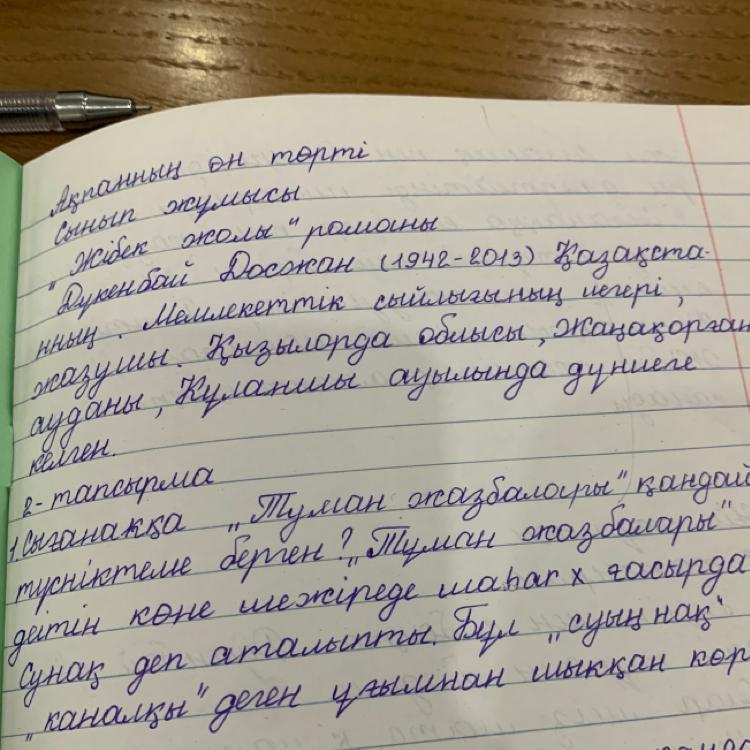 Ақпанның он төрті
Сынып жұмысы
„Жібек жолы" романы
Дүкенбай Досжан (1942-2013) Қазақста-
нның. Мемлекеттік сыйлығының иегері,
жазушы. Қызылорда облысы, Жаңақорған
ауданы, Құланшы ауылында дүниеге
келген.
2-тапсырма
1. Сығанаққа „Туман жазбалары" қандай
түсніктеме берген? „Туман жазбалары"
дейтін көне шежіреде шаһаr х ғасырда
Сунақ деп аталыпты. Бұл „суың нақ"
„каналқы" деген ұғымнан шыққан көр